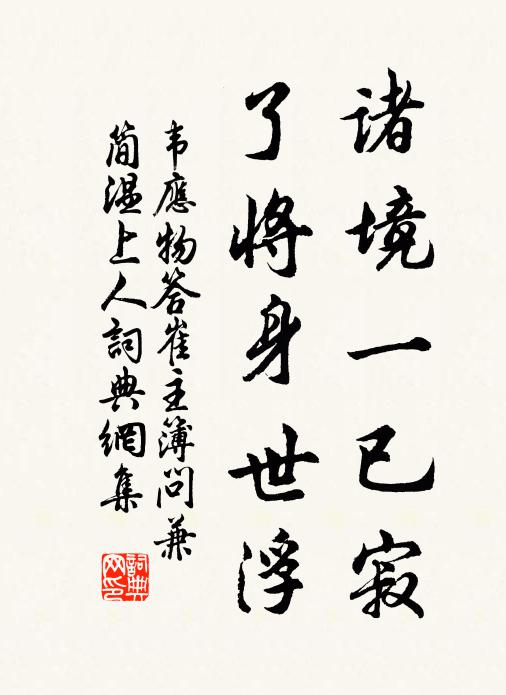 諸境一已寂
了將身世浮
韦應物答崔主簿問兼
简温上人詞典網集
詞典
网印